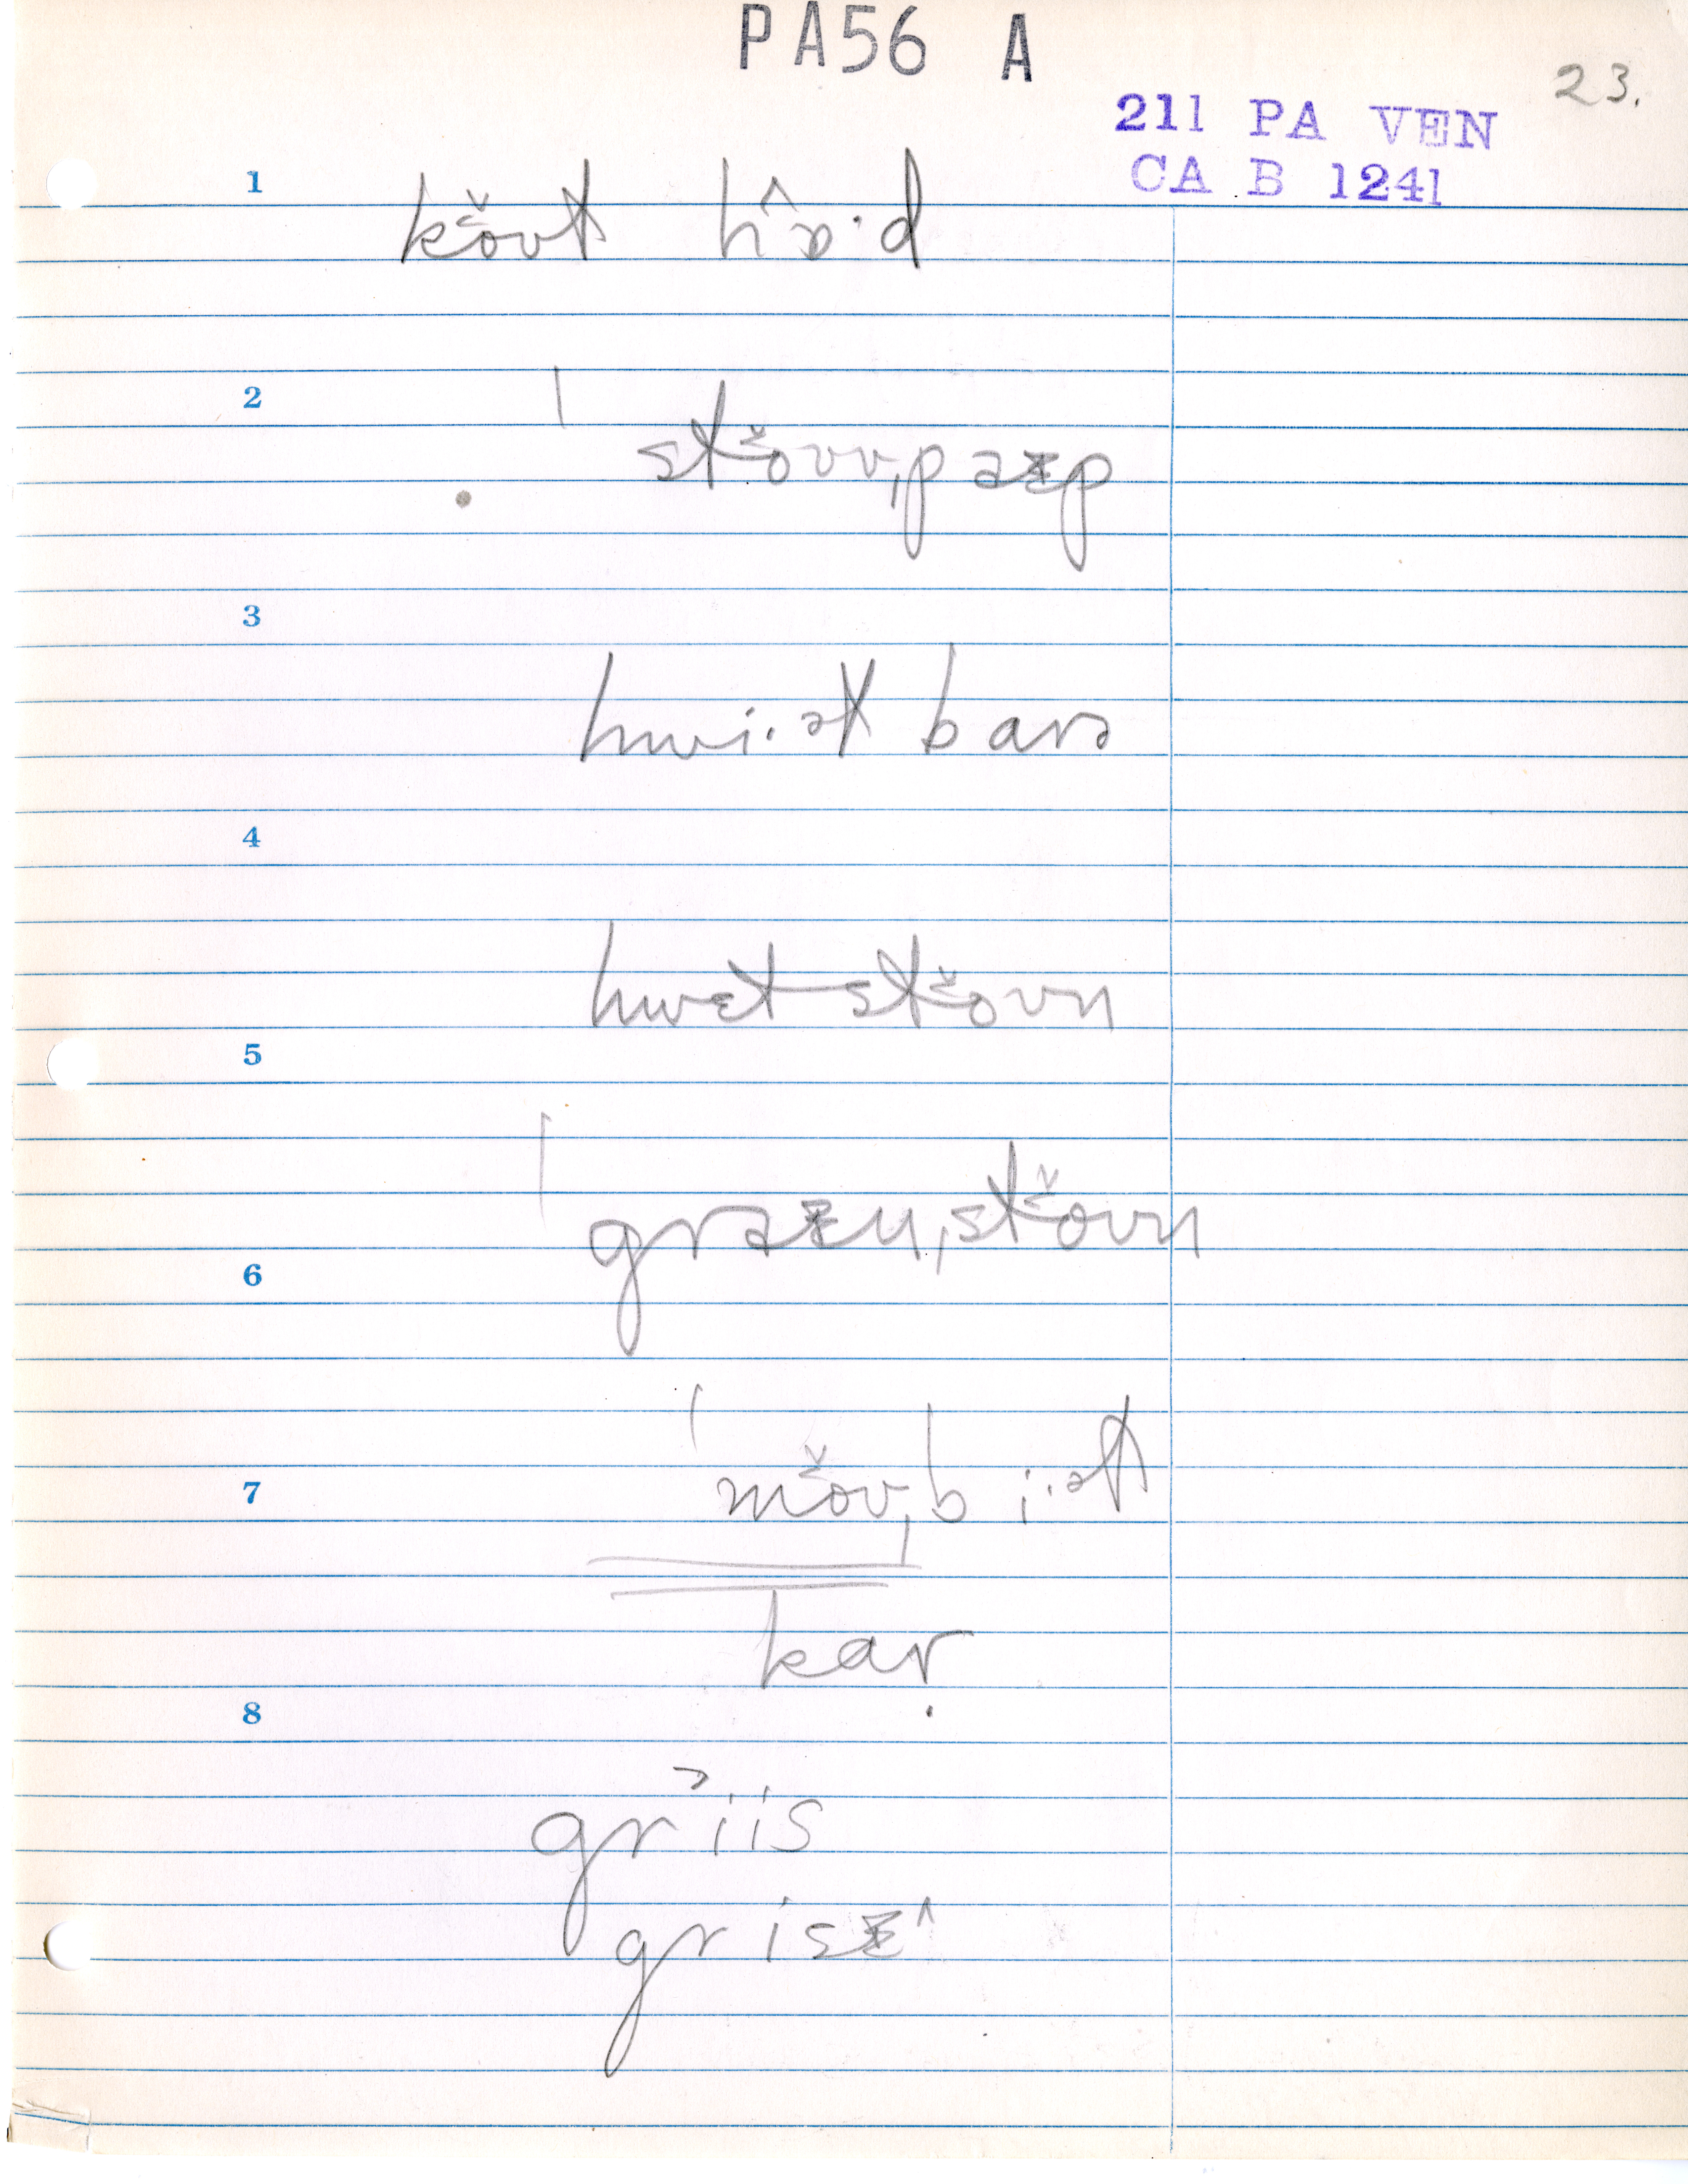 PA56 A
23.
211 PA VEN
CA B 1241
1
kǒ̬ʊt hɒ̂·d
2
ˈstǒʊvˌpaɪp
3
hwi·ət barə
4
hwɛtstǒʊn
5
ˈgraɪnˌstǒʊn
6
7
ˈmǒʊˌbi·əɫ
kaṛ
8
griis
grisɪ^